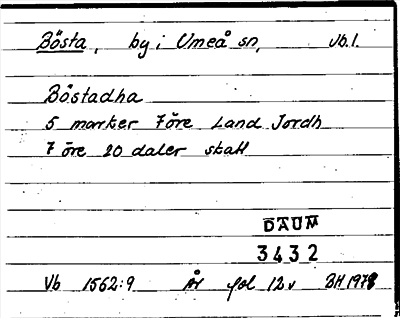 Bösta, by i Umeå sn, Vb.l.
Böstadha
5 marker 7 öre Land Jordh
7 öre 20 daler skatt
DAUM
3432
Vb 1562:9 År fol 12v BH 1978